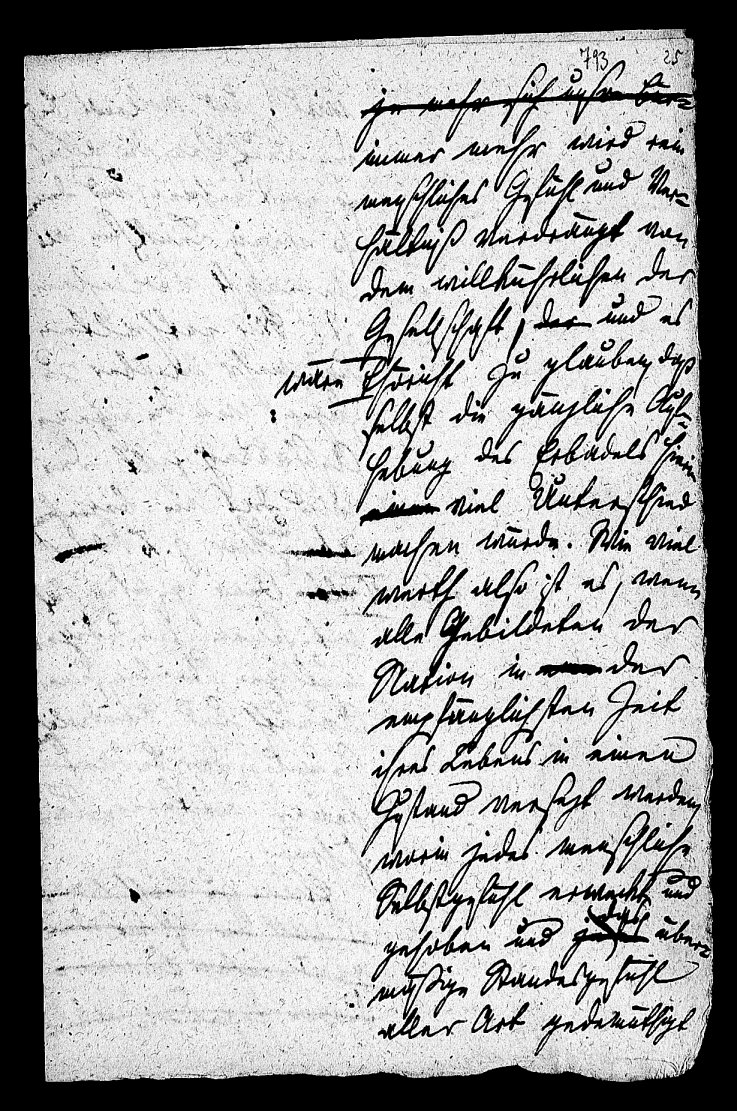 793 25
je mehr sich unsre
immer mehr wird rein
menschliches Gefühl und Ver-
hältniß verdrängt von
dem willkührlichen der
Gesellschaft, der und es
wäre thöricht zu glauben, daß
selbst die gänzliche Auf-
hebung des Erbadels hierin
einen viel Unterschied
machen würde. Wie viel
werth also ist es, wenn
alle Gebildeten der
Nation in der
empfänglichsten Zeit
ihres Lebens in einen
Zustand versezt werden,
worin jedes menschliche
Selbstgefühl erweckt und
gehoben und über-
mäßige Standesgefühl
aller Art gedemüthigt